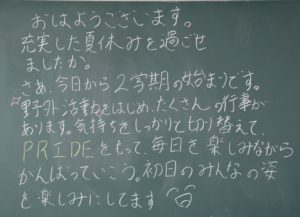 おはようございます。
充実した夏休みを過ごせ
ましたか。
さぁ、今日から2学期の始まりです。
野外活動をはじめ、たくさんの行事が
あります。気持ちをしっかりと切り替えて、
PRIDEをもって、毎日を楽しみながら
がんばっていこう。初日のみんなの姿
を楽しみにしてます